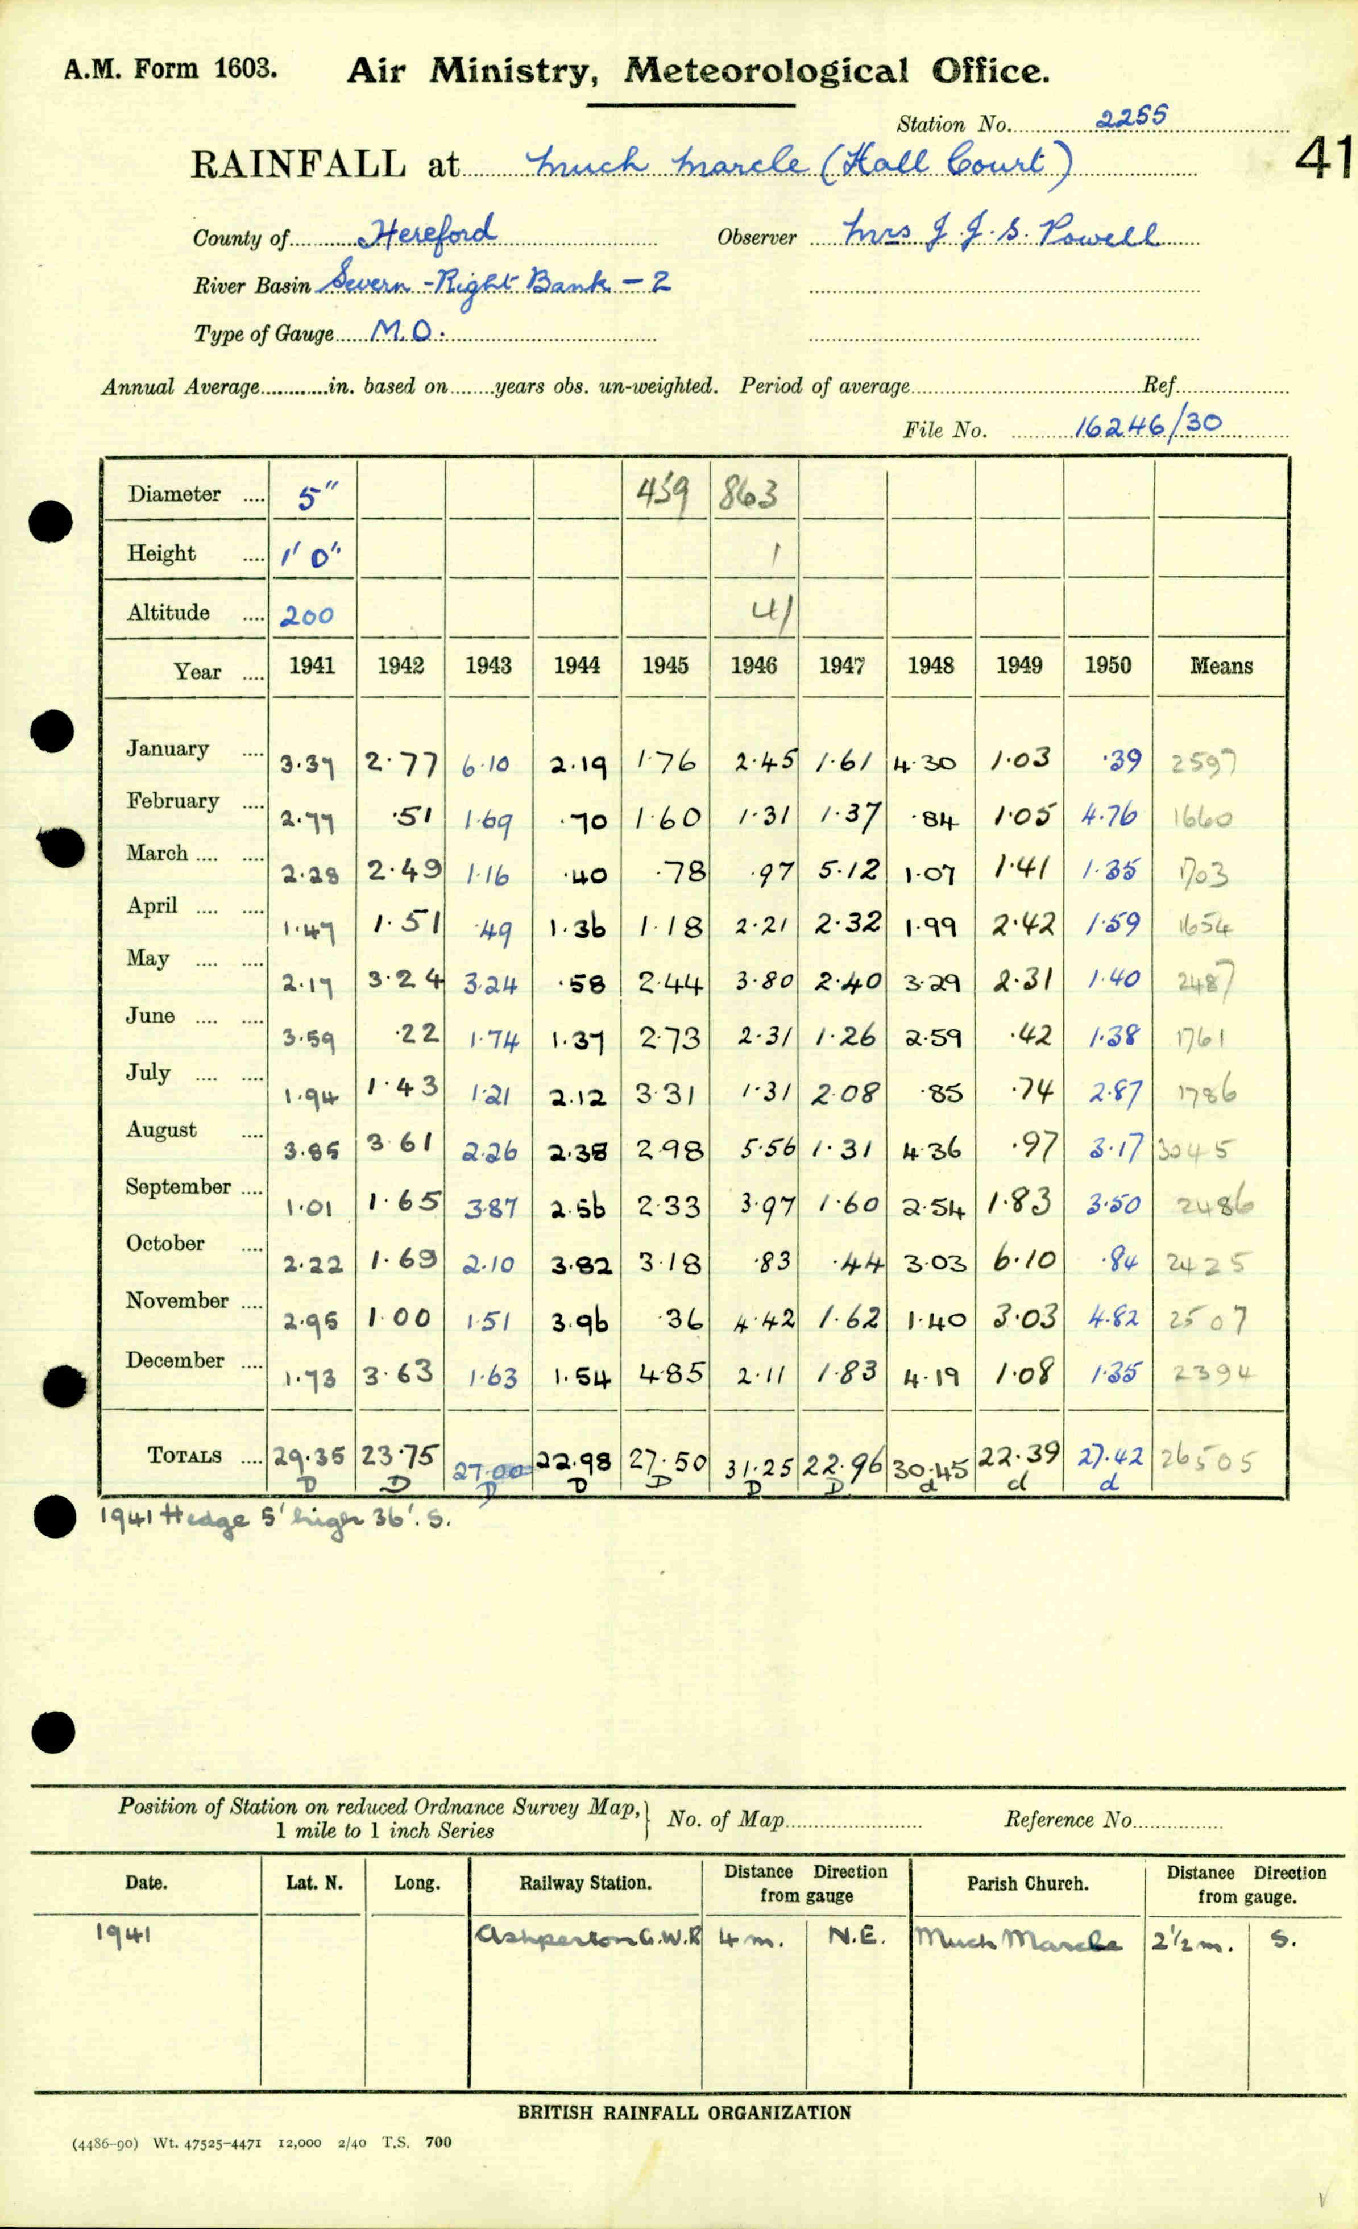 A.M. Form 1603. Air Ministry, Meteorological Office.
Station No. 2255
RAINFALL at Much Marcle (Hall Court) 41
County of Hereford Observer Mrs J. J. S. Powell
River Basin Severn - Right Bank - 2
Type of Gauge M.O.
Annual Average in. based on years obs. un-weighted. Period of average Ref.
File No. 16246/30
Diameter .... 5" 459 863
Height .... 1' 0" 1
Altitude .... 200 41
Year .... 1941 1942 1943 1944 1945 1946 1947 1948 1949 1950 Means
January .... 3.37 2.77 6.10 2.19 1.76 2.45 1.61 4.30 1.03 .39 2597
February .... 2.77 .51 1.69 .70 1.60 1.31 1.37 .84 1.05 4.76 1660
March .... .... 2.28 2.49 1.16 .40 .78 .97 5.12 1.07 1.41 1.35 1703
April .... .... 1.47 1.51 .49 1.36 1.18 2.21 2.32 1.99 2.42 1.59 1654
May .... .... 2.17 3.24 3.24 .58 2.44 3.80 2.40 3.29 2.31 1.40 2487
June .... .... 3.59 .22 1.74 1.37 2.73 2.31 1.26 2.59 .42 1.38 1761
July .... .... 1.94 1.43 1.21 2.12 3.31 1.31 2.08 .85 .74 2.87 1786
August .... 3.85 3.61 2.26 2.38 2.98 5.56 1.31 4.36 .97 3.17 3045
September .... 1.01 1.65 3.87 2.56 2.33 3.97 1.60 2.54 1.83 3.50 2486
October .... 2.22 1.69 2.10 3.82 3.18 .83 .44 3.03 6.10 .84 2425
November .... 2.95 1.00 1.51 3.96 .36 4.42 1.62 1.40 3.03 4.82 2507
December .... 1.73 3.63 1.63 1.54 4.85 2.11 1.83 4.19 1.08 1.35 2394
TOTALS .... 29.35 23.75 27.00 22.98 27.50 31.25 22.96 30.45 22.39 27.42 26505
D D D D D D D d d d
1941 Hedge 5' high 36'. S.
Position of Station on reduced Ordnance Survey Map, 1 mile to 1 inch Series No. of Map Reference No.
Date. Lat. N. Long. Railway Station. Distance Direction from gauge Parish Church. Distance Direction from gauge.
1941 Ashperton G.W.R 4 m. N.E. Much Marcle 2½ m. S.
BRITISH RAINFALL ORGANIZATION
(4486-90) Wt. 47525-4471 12,000 2/40 T.S. 700